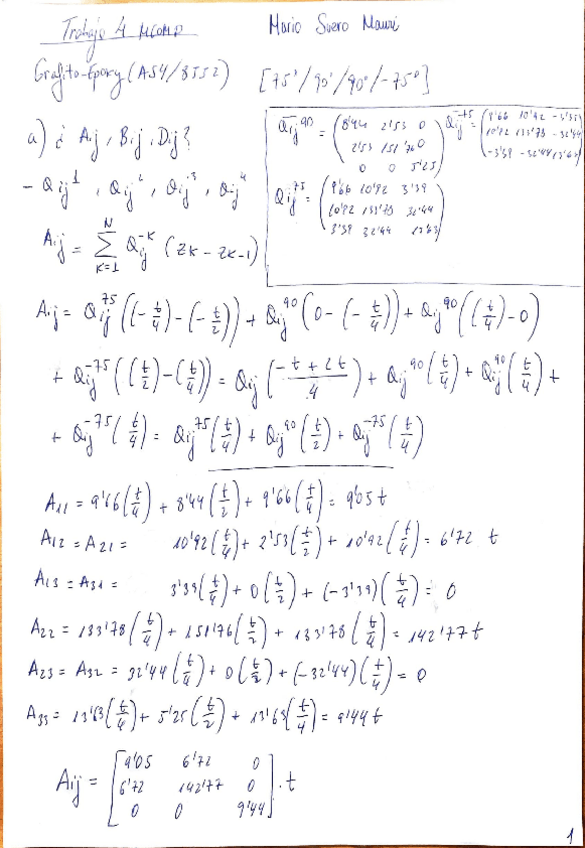 Trabajo 4 MCOMP Mario Suero Mauri
Grafito-Epoxy (AS4/8552) [75°/90°/90°/-75°]
a) ¿Aij, Bij, Dij?
Qij^90 = (8'44 2'53 0
2'53 151'76 0
0 0 5'25)
Qij^-75 = (9'66 10'92 -3'39
10'92 133'78 -32'44
-3'39 -32'44 13'63)
Qij^75 = (9'66 10'92 3'39
10'92 133'78 32'44
3'39 32'44 13'63)
- Qij^1, Qij^2, Qij^3, Qij^4
Aij = Σ_{K=1}^{N} Q̄ij^K (ZK - ZK-1)
Aij = Qij^75 ((-t/4) - (-t/2)) + Qij^90 (0 - (-t/4)) + Qij^90 ((t/4) - 0)
+ Qij^-75 ((t/2) - (t/4)) = Qij (-t + 2t / 4) + Qij^90 (t/4) + Qij^90 (t/4) +
+ Qij^-75 (t/4) = Qij^75 (t/4) + Qij^90 (t/2) + Qij^-75 (t/4)
A11 = 9'66 (t/4) + 8'44 (t/2) + 9'66 (t/4) = 9'05 t
A12 = A21 = 10'92 (t/4) + 2'53 (t/2) + 10'92 (t/4) = 6'72 t
A13 = A31 = 3'39 (t/4) + 0 (t/2) + (-3'39) (t/4) = 0
A22 = 133'78 (t/4) + 151'76 (t/2) + 133'78 (t/4) = 142'77 t
A23 = A32 = 32'44 (t/4) + 0 (t/2) + (-32'44) (t/4) = 0
A33 = 13'63 (t/4) + 5'25 (t/2) + 13'63 (t/4) = 9'44 t
Aij = [9'05 6'72 0
6'72 142'77 0
0 0 9'44] . t
1